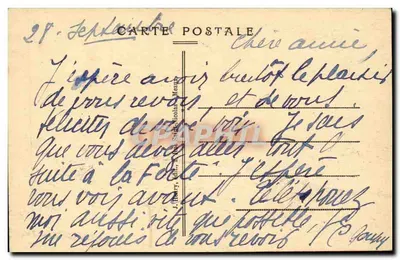 CARTE POSTALE
28 Septembre
Chère amie,
J'espère avoir bientôt le plaisir
de vous revoir, et de vous
féliciter de vive voix. Je sais
que vous devez aller tout
suite à la Forte J'espère
vous voir avant. Téléphonez
moi aussi vite que possible, je
me réjouis de vous revoir